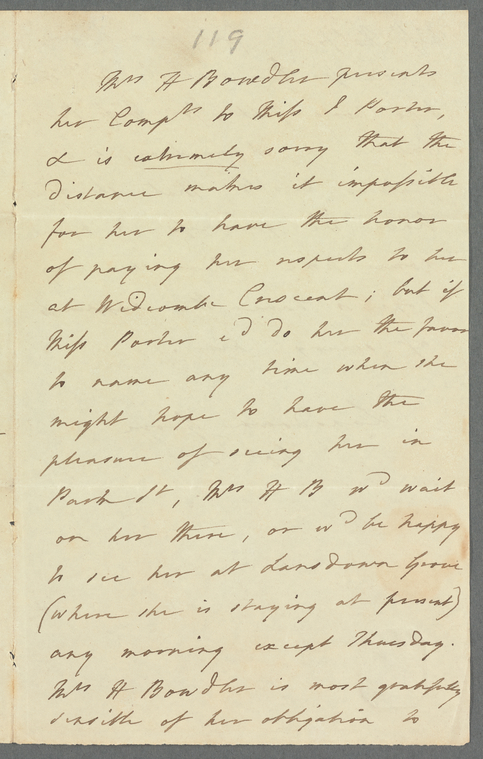 119
Mrs H Bowdler presents
her Compts to Miss J Porter,
& is extremely sorry that the
distance makes it impossible
for her to have the honor
of paying her respects to her
at Widcombe Crescent; but if
Miss Porter cd do her the favor
to name any time when she
might hope to have the
pleasure of seeing her in
Park St, Mrs H B wd wait
on her there, or wd be happy
to see her at Lansdown Grove
(where she is staying at present)
any morning except Thursday.
Mrs H Bowdler is most gratefully
sensible of her obligation to